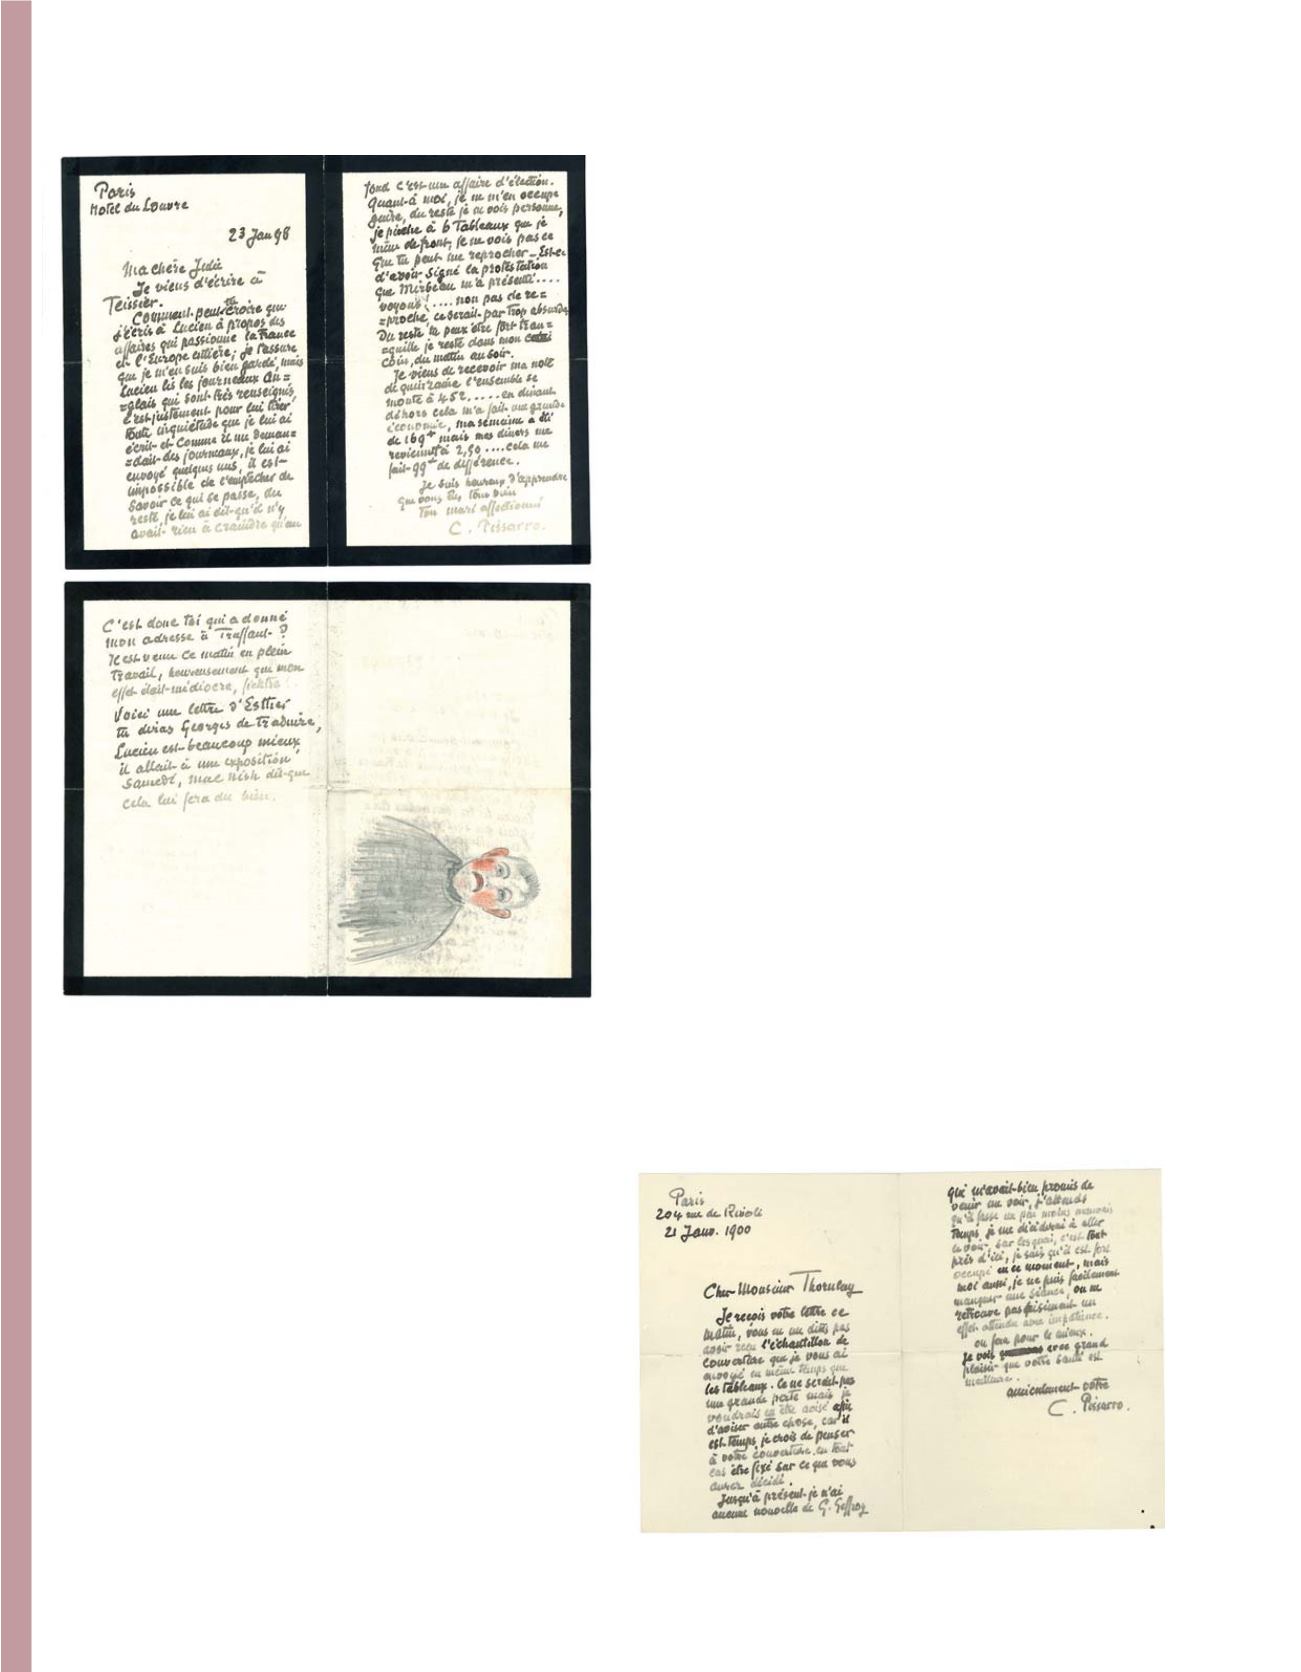 Paris
Hotel du Louvre
23 Jan 98
Ma chère Julie
Je viens d'écrire à
Teissier.
Comment peut tu croire que
j'écris à Lucien à propos des
affaires qui passionne la France
et l'Europe entière; je t'assure
que je m'en suis bien gardé, mais
Lucien lis les journeaux An=
=glais qui sont très renseignés
c'est justement pour lui tirer
toute inquiétude que je lui ai
écrit et comme il me deman=
=dait des journaux, je lui ai
envoyé quelques uns, il est
impossible de l'empêcher de
savoir ce qui se passe, du
reste je lui ai dit qu'il n'y
avait rien à craindre qu'au
fond c'est une affaire d'élection.
Quant à moi, je ne m'en occupe
guère, du reste je ne vois personne,
je pioche à 6 Tableaux que je
mène de front, je ne vois pas ce
que tu peut me reprocher _ Est-ce
d'avoir signé la protestation
que Mirbeau m'a présenté....
voyons! .... non pas de re=
=proche, ce serait par trop absurde
Du reste tu peux être fort tran=
=quille je reste dans mon
coin, du matin au soir.
Je viens de recevoir ma note
de quinzaine l'ensemble se
monte à 452.....en dinant
déhors cela m'a fait une grande
économie, ma semaine a été
de 169 mais mes diners me
reviennent à 2,50....cela me
fait 99 de différence.
Je suis heureux d'apprendre
que vous êtes tous bien
Ton mari affectionné
C. Pissarro.
C'est donc toi qui a donné
mon adresse à Truffaut ?
Il est venu ce matin en plein
travail, heureusement que mon
effet était médiocre, fichtre!
Voici une lettre d'Esther
tu diras Georges de traduire,
Lucien est beaucoup mieux
il allait à une exposition
samedi, mac Nish dit que
cela lui fera du bien.
Paris
204 rue de Rivoli
21 Janv. 1900
Cher Monsieur Thornley
Je reçois votre lettre ce
matin, vous ne me dites pas
avoir reçu l'échantillon de
couverture que je vous ai
envoyé en même temps que
les tableaux. Ce ne serait pas
une grande perte mais je
voudrais en être avisé afin
d'aviser autre chose, car il
est temps je crois de penser
à votre couverture en tout
cas être fixé sur ce que vous
aurez décidé.
Jusqu'à présent je n'ai
aucune nouvelle de G. Geffroy
qui m'avait bien promis de
venir me voir, j'attends
qu'il fasse un peu moins mauvais
temps, je me déciderai à aller
le voir sur les quai, c'est tout
près d'ici, je sais qu'il est fort
occupé en ce moment, mais
moi aussi, je ne puis facilement
manquer une séance, on ne
retrouve pas aisément un
effet attendu avec impatience.
on fera pour le mieux.
Je vois avec grand
plaisir que votre santé est
meilleure.
amicalement votre
C. Pissarro.